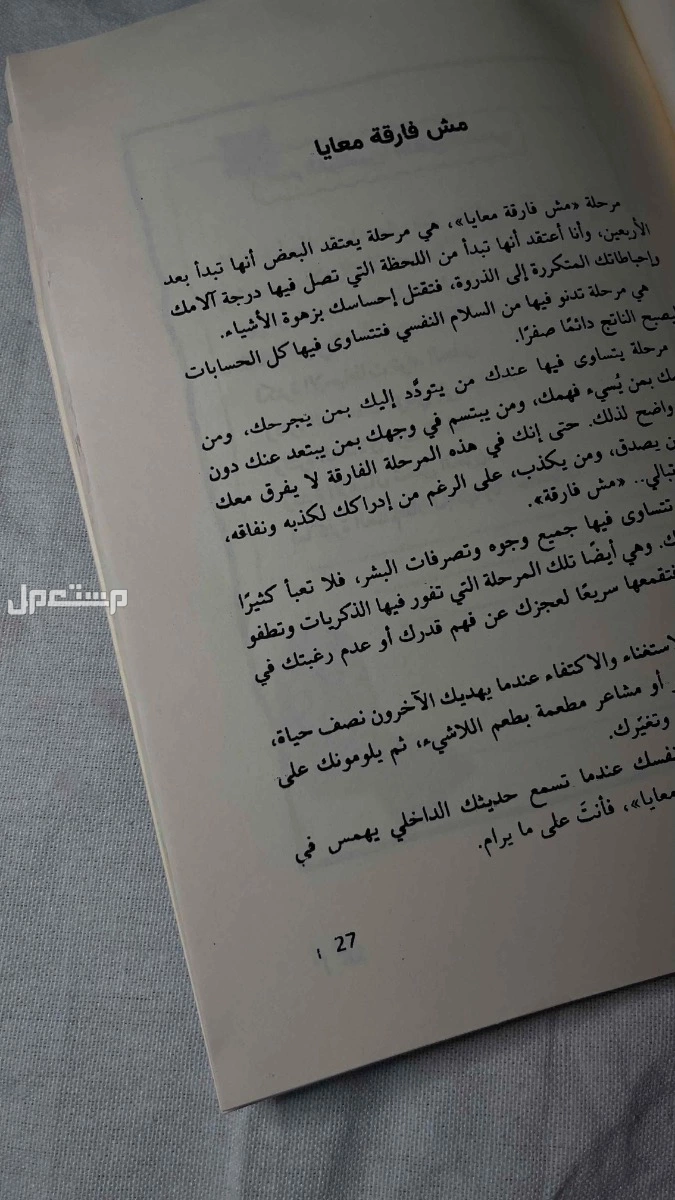 مش فارقة معايا
مرحلة «مش فارقة معايا»، هي مرحلة يعتقد البعض أنها تبدأ بعد
الأربعين، وأنا أعتقد أنها تبدأ من اللحظة التي تصل فيها درجة آلامك
وإحباطاتك المتكررة إلى الذروة، فتقتل إحساسك بزهوة الأشياء.
هي مرحلة تدنو فيها من السلام النفسي فتتساوى فيها كل الحسابات
يصبح الناتج دائمًا صفرًا.
مرحلة يتساوى فيها عندك من يتودَّد إليك بمن يجرحك، ومن
بمن يُسيء فهمك، ومن يبتسم في وجهك بمن يبتعد عنك دون
واضح لذلك. حتى إنك في هذه المرحلة الفارقة لا يفرق معك
يصدق، ومن يكذب، على الرغم من إدراكك لكذبه ونفاقه،
«مش فارقة».
تتساوى فيها جميع وجوه وتصرفات البشر، فلا تعبأ كثيرًا
وهي أيضًا تلك المرحلة التي تفور فيها الذكريات وتطفو
فتقمعها سريعًا لعجزك عن فهم قدرك أو عدم رغبتك في
والاكتفاء عندما يهديك الآخرون نصف حياة،
أو مشاعر مطعمة بطعم اللاشيء، ثم يلومونك على
وتغيّرك.
عندما تسمع حديثك الداخلي يهمس في
معايا»، فأنتَ على ما يرام.
27
مستعمل